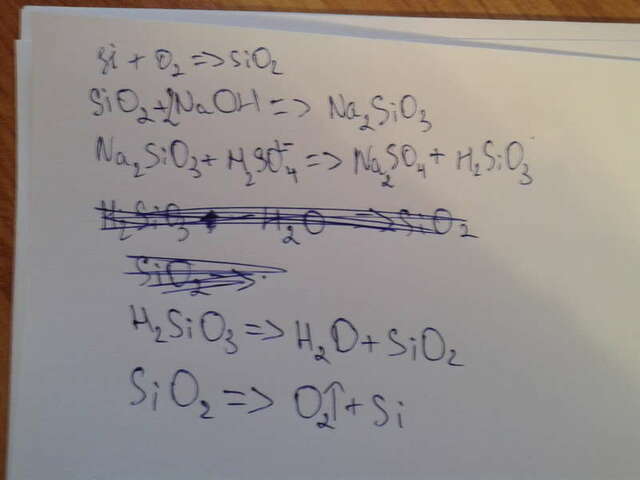 Si + O₂ => SiO₂
SiO₂ + 2NaOH => Na₂SiO₃
Na₂SiO₃ + H₂SO₄ => Na₂SO₄ + H₂SiO₃
H₂SiO₃ H₂O => SiO₂
SiO₂ =>
H₂SiO₃ => H₂O + SiO₂
SiO₂ => O₂↑ + Si